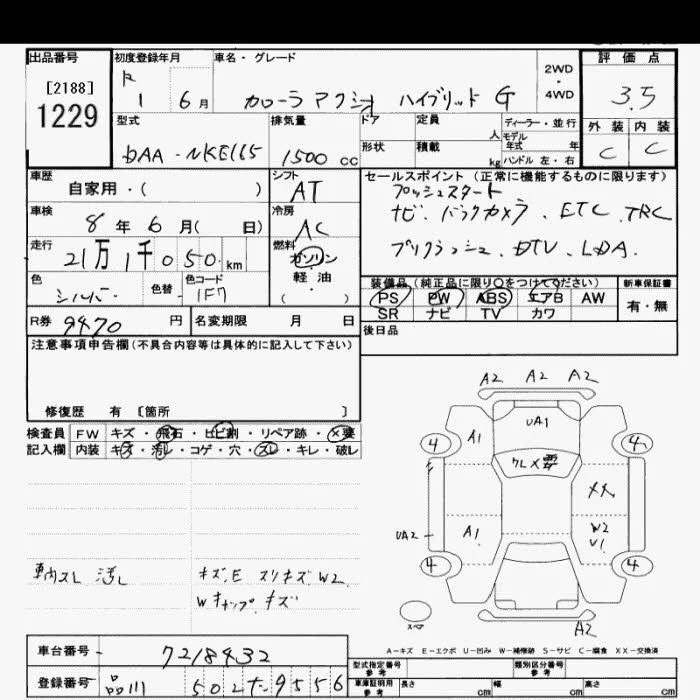 出品番号
[2188]
1229
初度登録年月
R 1 6月
車名・グレード
カローラ アクシオ ハイブリッド G
2WD
・
4WD
評価点
3.5
外装 内装
C C
型式
DAA-NKE165
排気量
1500 cc
ドア
形状
定員
人
積載
kg
ディーラー・並行
モデル
年式 年
ハンドル 左・右
車歴
自家用・( )
シフト
AT
セールスポイント(正常に機能するものに限ります)
プッシュスタート
ナビ. バックカメラ. ETC. TRC
プリクラッシュ. DTV. LDA.
車検
8年 6月( 日)
冷房
AC
走行
21万1千050km
燃料
ガソリン
軽・油
( ・ )
色
シルバー
色替
色コード
1F7
装備品(純正品に限り○をつけてください)
PS PW ABS エアB AW
SR ナビ TV カワ
新車保証書
有・無
R券 9470 円
名変期限 月 日
後日品
注意事項申告欄(不具合内容等は具体的に記入して下さい)
修復歴 有 [箇所 ]
検査員
記入欄
FW キズ・飛石・ヒビ割・リペア跡・×要
内装 キズ・汚レ・コゲ・穴・スレ・キレ・破レ
車内スレ 汚レ
キズ.E スリキズ W2
Wキャップ キズ
A2 A2 A2
UA1
A1
4
4
クレ×要
××
UA2
A1
W2
U1
4
4
スペア
A2
A-キズ E-エクボ U-凹み W-補修跡 S-サビ C-腐食 XX-交換済
車台番号 - 7218432
登録番号 品川 502 た 9556
型式指定番号
参考
類別区分番号
参考
車庫証明用
参考
長さ cm
幅 cm
高さ cm